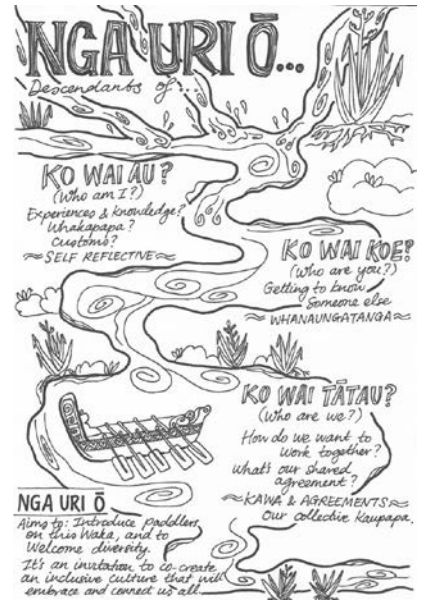 NGA URI Ō...
Descendants of...
KO WAI AU?
(Who am I?)
Experiences & knowledge?
Whakapapa?
Customs?
≈ SELF REFLECTIVE ≈
KO WAI KOE?
(Who are you?)
Getting to know
Someone else
≈ WHANAUNGATANGA ≈
KO WAI TĀTAU?
(Who are we?)
How do we want to
work together?
What's our shared
agreement?
≈ KAWA & AGREEMENTS ≈
Our collective Kaupapa.
NGA URI Ō
Aims to: Introduce paddlers
on this Waka, and to
Welcome diversity.
It's an invitation to co-create
an inclusive culture that will
embrace and connect us all.